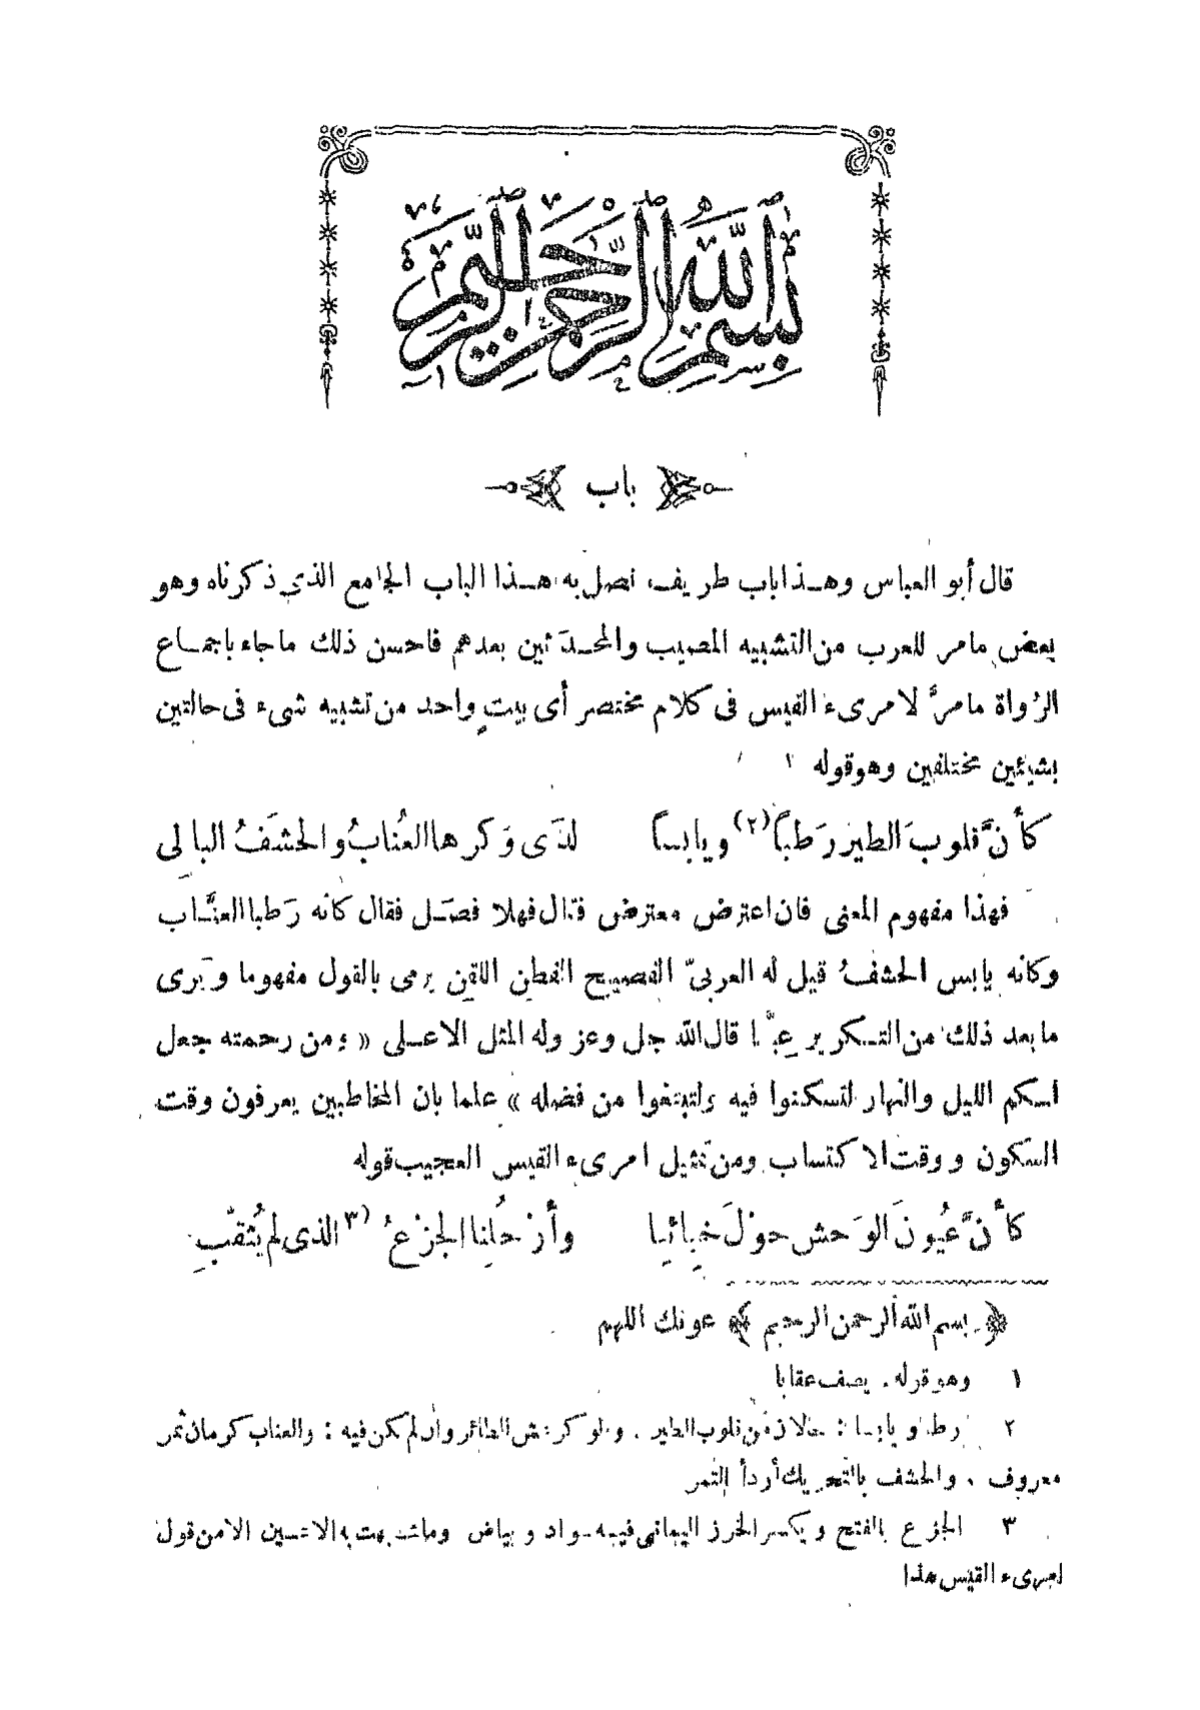 بِسْمِ اللهِ الرَّحْمٰنِ الرَّحِيْمِ
باب
قال أبو العباس وهـذا باب طريف نصل به هـذا الباب الجامع الذي ذكرناه وهو
بعض مامر للعرب من التشبيه المصيب والمحـدَثين بعدهم فاحسن ذلك ماجاء باجمـاع
الرُواة مامرَّ لامرىء القيس فى كلام مختصر أى بيتٍ واحد من تشبيه شىء فى حالتين
بشيئين مختلفين وهوقوله ١
كأنَّ قلوبَ الطير رَطباً (٢) ويابسـاً لدَى وَكرها العُنابُ والحشَفُ البالِى
فهذا مفهوم المعنى فان اعترض معترض فقال فهلا فصَـل فقال كانه رَطبا العنَّـاب
وكانه يابس الحشفُ قيل له العربىّ الفصيح الفطن اللقِن يرمى بالقول مفهوما ويَرى
مابعد ذلك من التـكرير عِيّـا قال الله جل وعز وله المثل الاعـلى « ومن رحمته جعل
لـكم الليل والنهار لتسكنوا فيه ولتبتغوا من فضله » علما بان المخاطبين يعرفون وقت
السكون ووقت الاكتساب ومن تمثيل امرىء القيس العجيب قوله
كأنَّ عُيُونَ الوَحشِ حوْلَ خِبائِنا وأرْحُلِنا الجزْعُ (٣ الذى لم يُثقّبِ
﴿ بسم الله الرحمن الرحيم ﴾ عونك اللهم
١ وهو قوله. يصف عقابا
٢ رطبا ويابسـا : حالان من قلوب الطير . والوكر عش الطائر وان لم يكن فيه : والعناب كرمان ثمر
معروف . والحشف بالتحريك أردأ التمر
٣ الجزع بالفتح ويكسر الخرز اليمانى فيه سواد وبياض وماتشبهت به الاعين الامن قول
امرىء القيس هذا